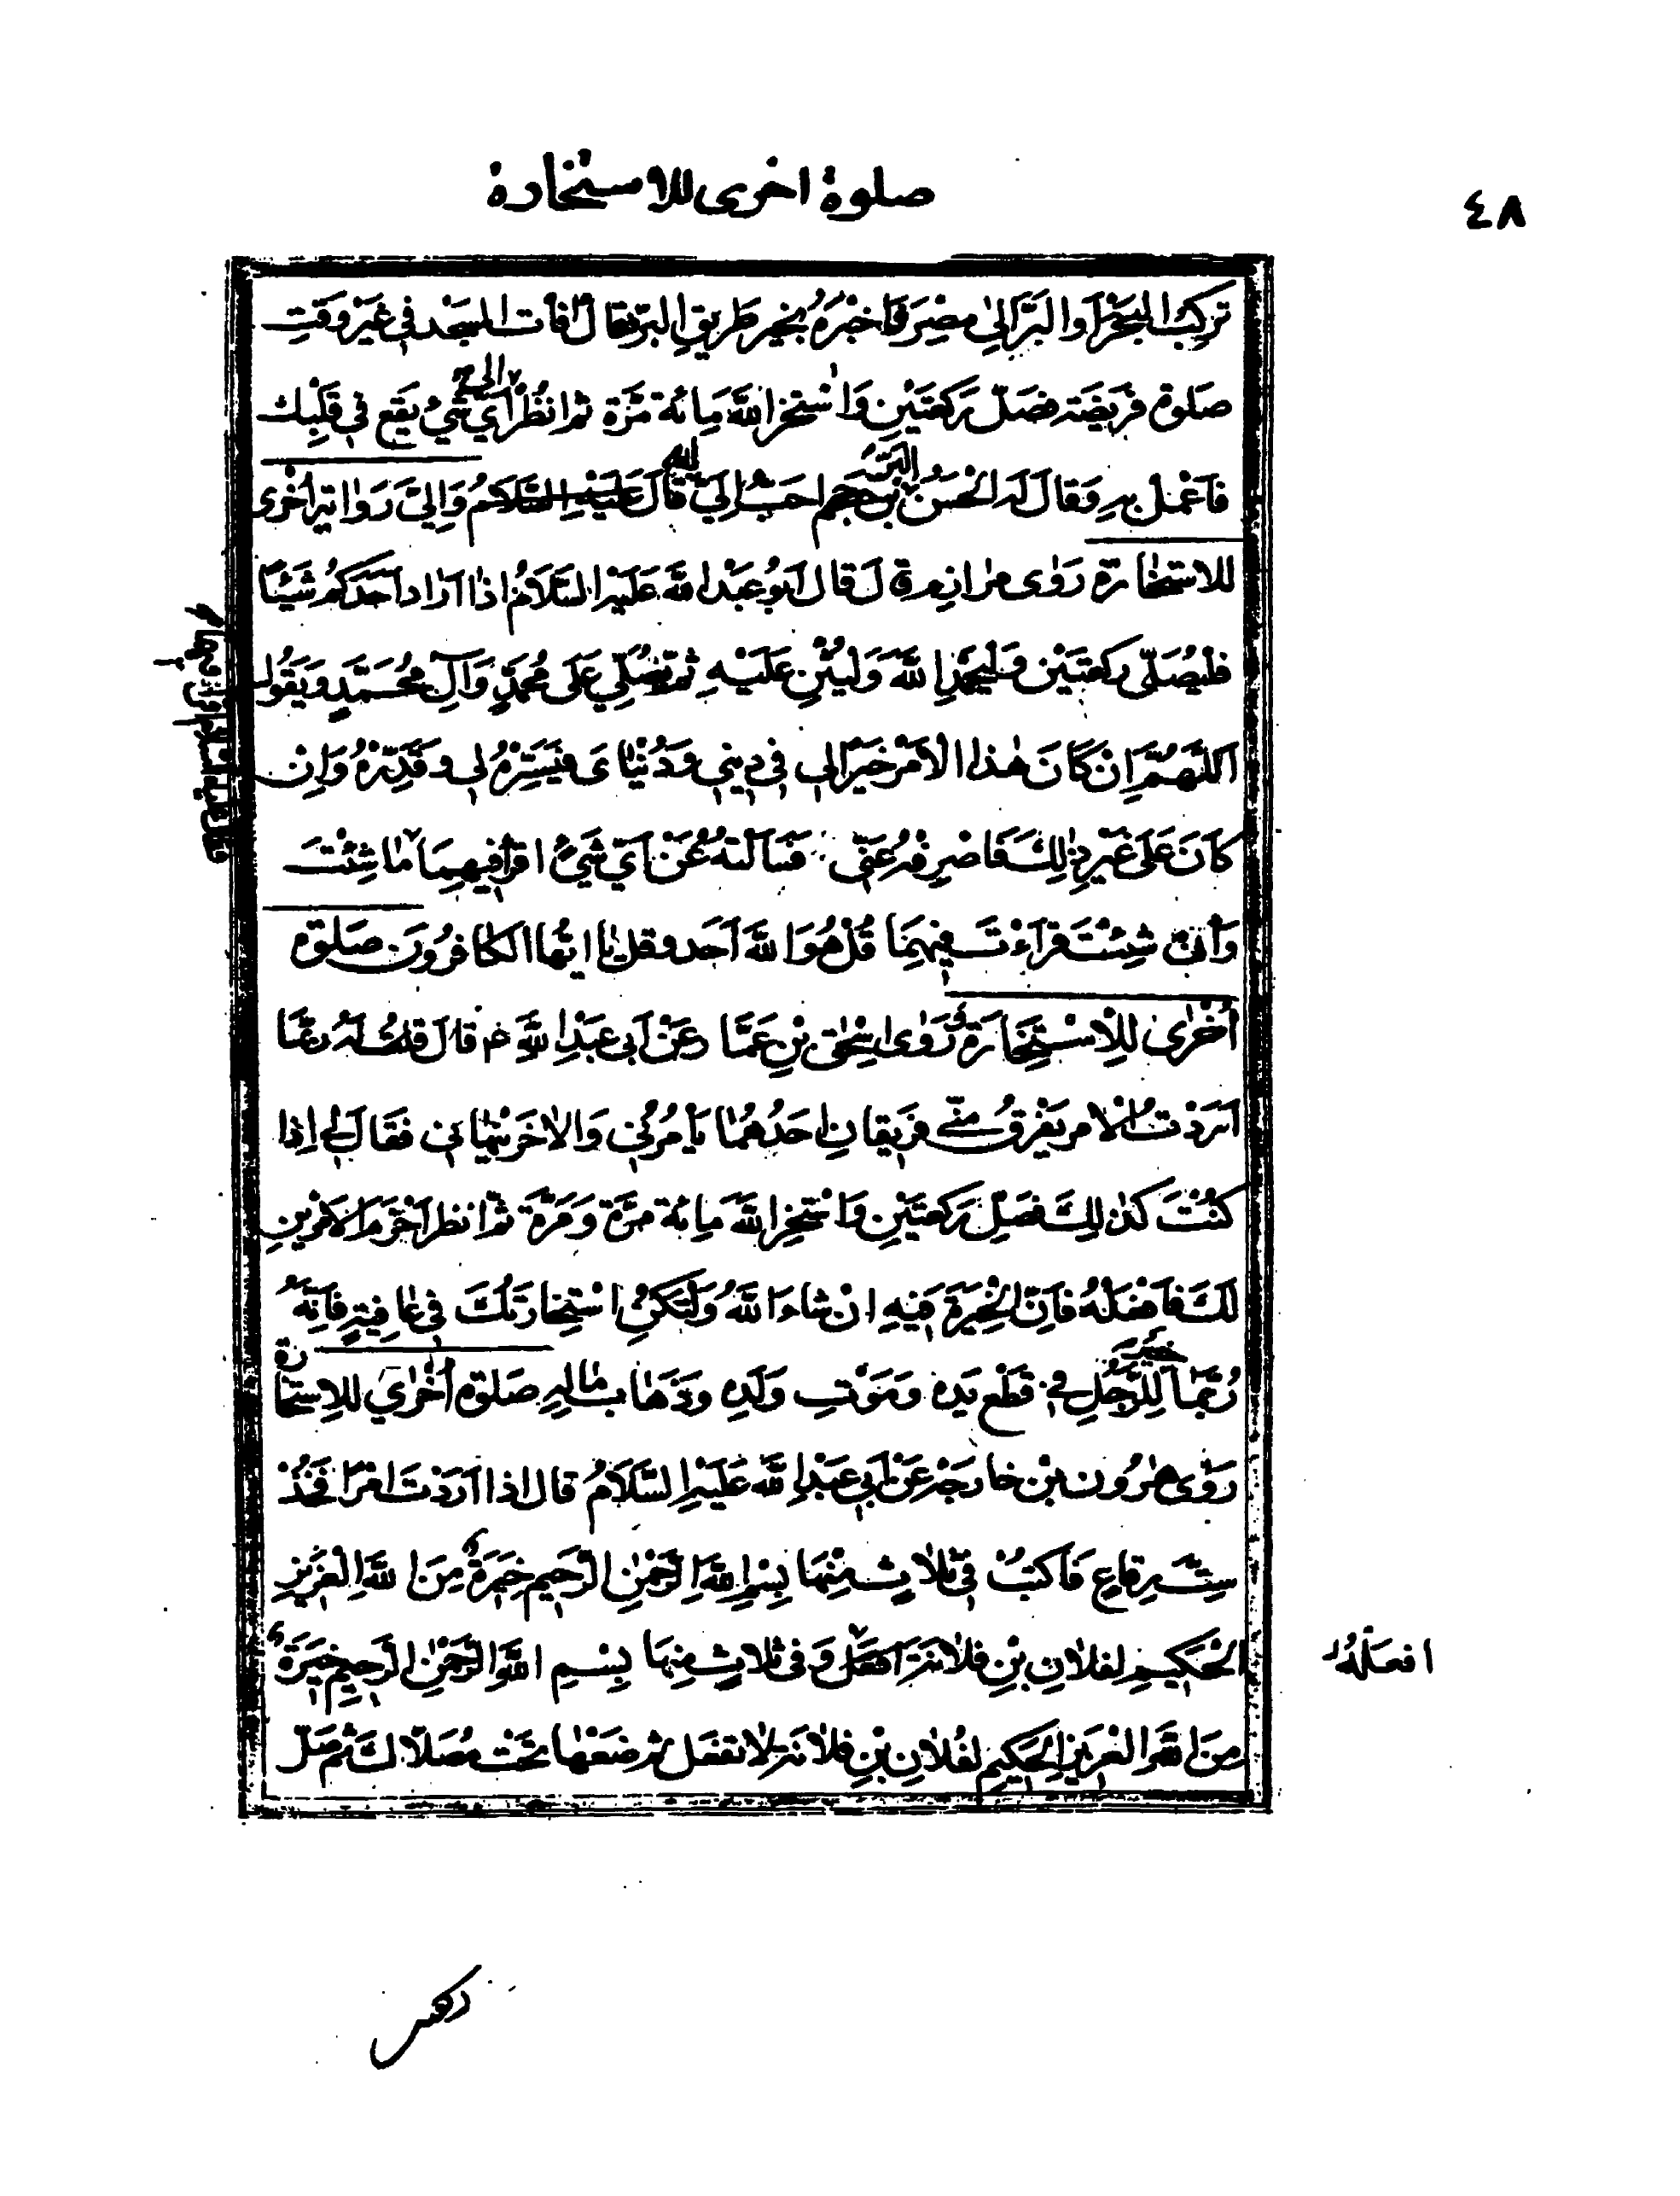 ٤٨
صلوة اخرى للاستخارة
تركب البحر او البر الى مصر فاخبره بخير طريق البر فقال فأت المسجد في غير وقت
صلوة فريضة فصل ركعتين واستخر الله مائة مرة ثم انظر اي شيء يقع في قلبك
الى
فاعمل به وقال له الحسن بن جهم احب الي قال عليه السلام والي رواية اخرى
البر
له
للاستخارة روى مرازم قال قال ابو عبد الله عليه السلام اذا اراد احدكم شيئا
فليصلي ركعتين وليحمد الله وليثن عليه ثم تصلي على محمد وآل محمد ويقول
اللهم ان كان هذا الامر خيرا لي في ديني ودنياى فيسره لي وقدره وان
كان على غير ذلك فاصرفه عني فسألته عن اي شيء اقرأ فيهما ما شئت
وان شئت قرأت فيهما قل هو الله احد وقل يا ايها الكافرون صلوة
اخرى للاستخارة روى اسحق بن عمار عن ابي عبد الله ع قال قلت له ربما
اردت الامر يفرق مني فريقان احدهما يأمرني والاخر ينهاني فقال لي اذا
كنت كذلك فصل ركعتين واستخر الله مائة مرة ومرة ثم انظر احزم الامرين
لك فافعله فان الخيرة فيه ان شاء الله ولتكن استخارتك في عافية فانه
ربما خير للرجل في قطع يده وموت ولده وذهاب ماله صلوة اخرى للاستخارة
روى هرون بن خارجة عن ابي عبد الله عليه السلام قال اذا اردت امرا فخذ
ست رقاع فاكتب في ثلاث منها بسم الله الرحمن الرحيم خيرة من الله العزيز
الحكيم لفلان بن فلانة افعل وفي ثلاث منها بسم الله الرحمن الرحيم خيرة
افعله
من الله العزيز الحكيم لفلان بن فلانة لا تفعل ثم ضعها تحت مصلاك ثم صل